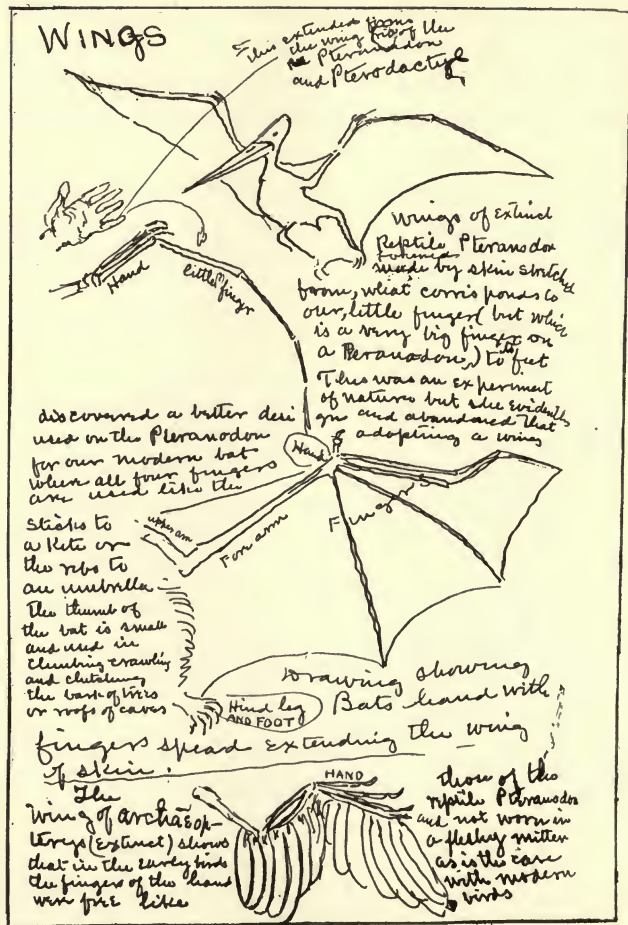 WINGS
This extended forms
the wing of the
Pteranodon
and Pterodactyl
Wings of Extinct
Reptile Pteranodox
made by skin stretched
from, what corrisponds to
our, little finger (but which
is a very big finger on
a Peranodon,) to feet
This was an experiment
of nature but she evidently
discovered a better desi
gn and abandoned that
used on the Pteranodon
adopting a wing
for our modern bat
where all four fingers
are used like the
sticks to
a Kite or
the ribs to
an umbrella
the thumb of
the bat is small
and used in
climbing crawling
and clutching
the bark of trees
or roofs of caves
Hand
little finger
Hand
upper arm
Fore arm
Fingers
Hind leg
AND FOOT
Drawing showing
Bats hand with
fingers spead Extending the wing
of skin.
The
wing of archæop-
teryx (Extinct) shows
that in the early birds
the fingers of the hand
were free like
HAND
those of the
reptile Pteranodon
and not worn in
a fleshy mitten
as is the case
with modern
birds